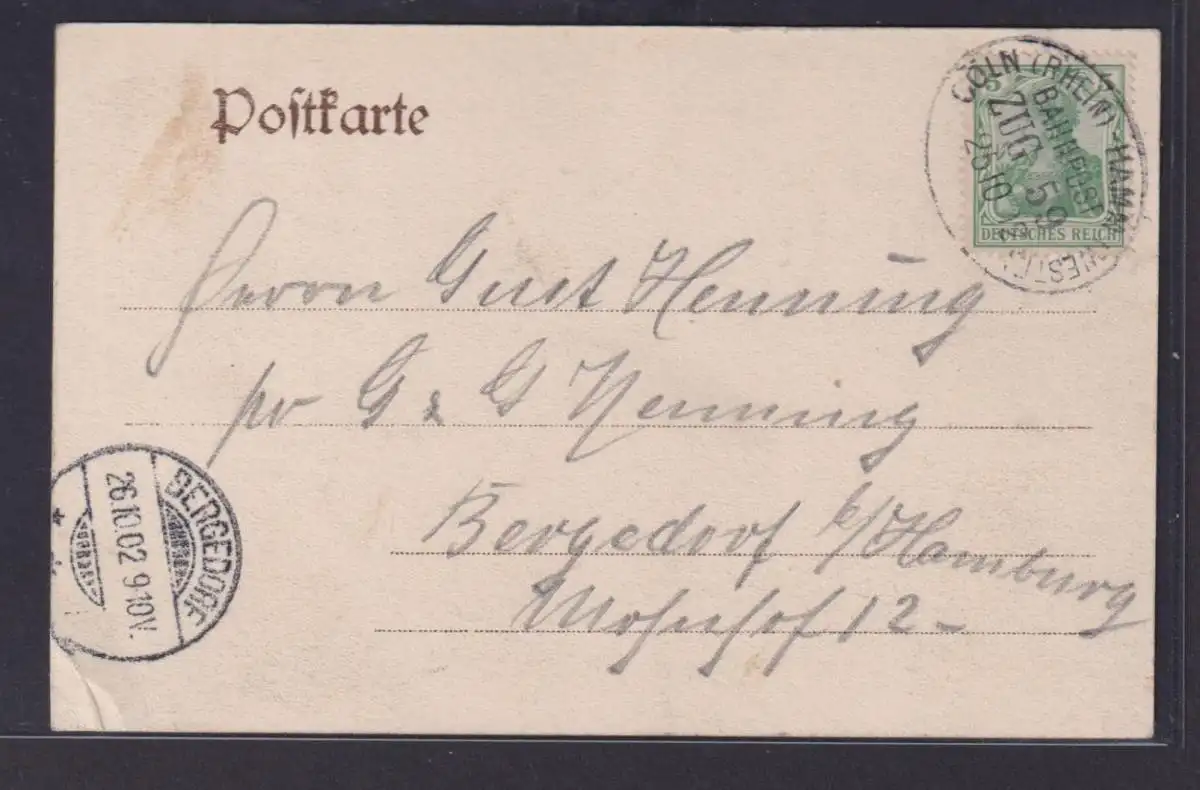 Postkarte
CÖLN (RHEIN) - HAMM (WESTF)
BAHNPOST
ZUG 59
25 10
DEUTSCHES REICH
Herrn Gust Henning
pr G & G Henning
Bergedorf b/Hamburg
12-
BERGEDORF
26.10.02 9-10V.